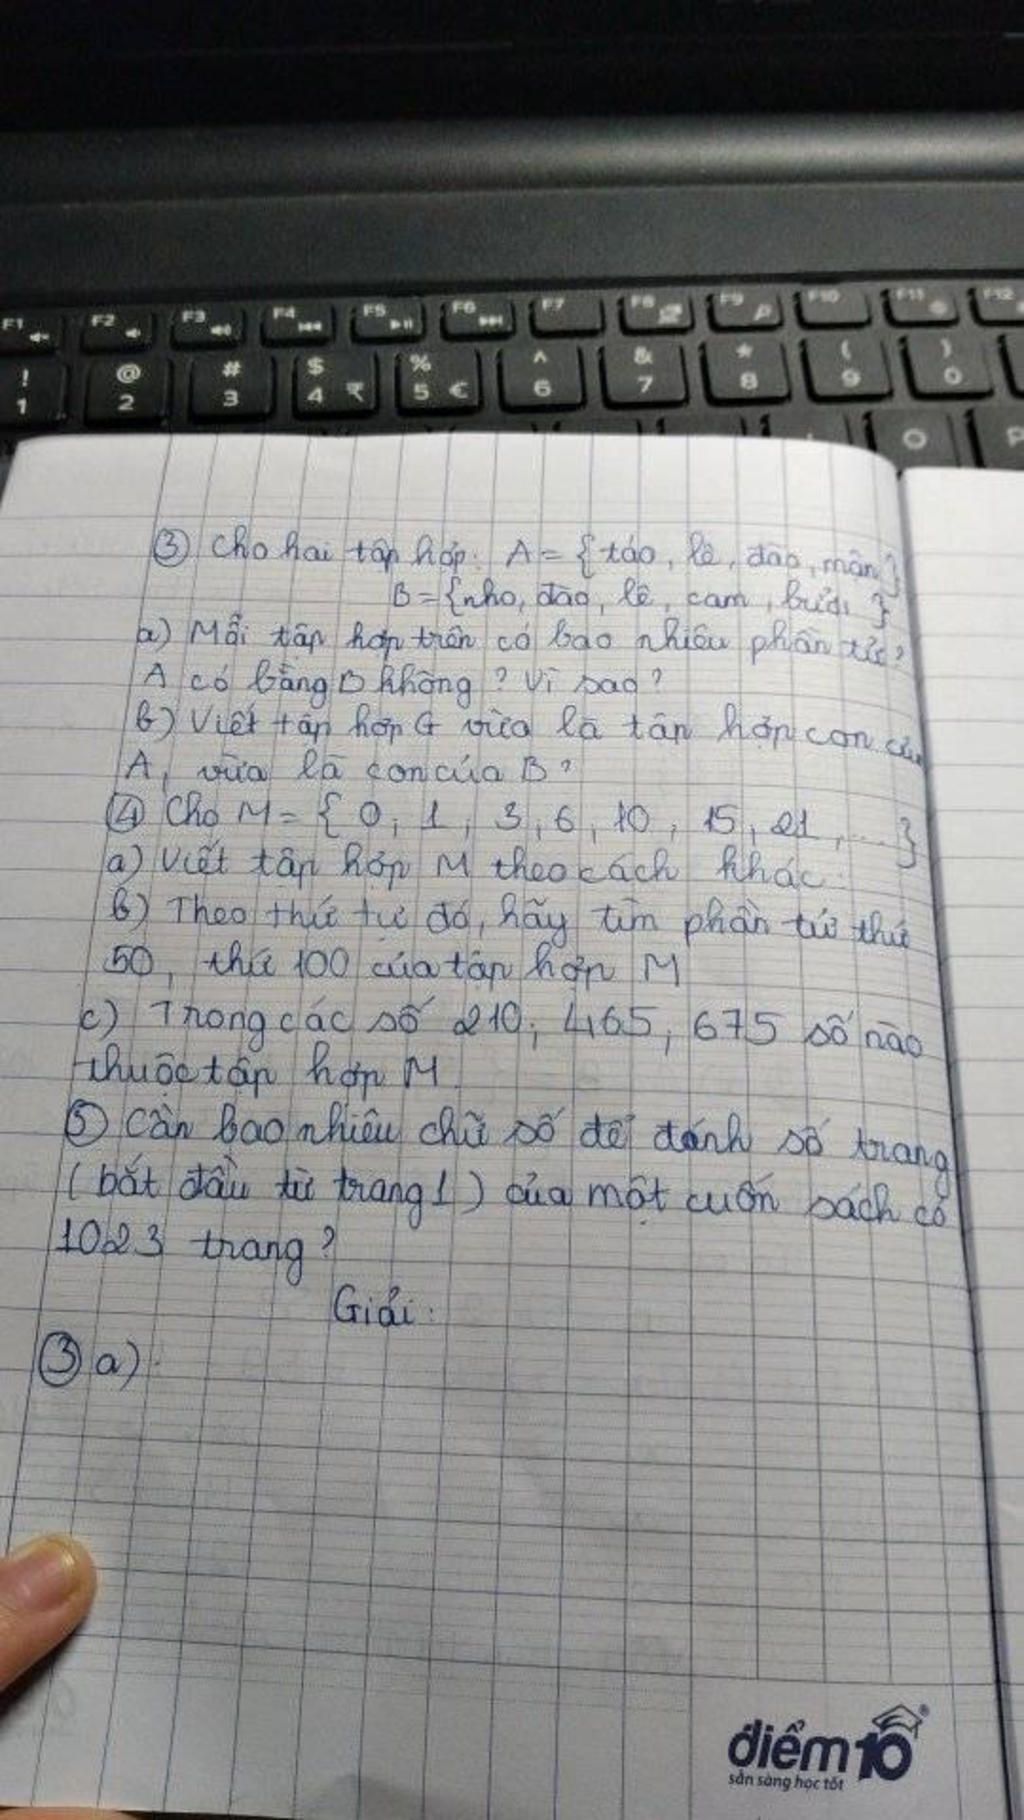 F1 F2 F3 F4 F5 F6 F7 F8 F9 F10 F11 F12
! @ # $ % ^ & * ( )
1 2 3 4 ₹ 5 € 6 7 8 9 0
O P
③ Cho hai tập hợp: A = { táo, lê, đào, mận }
B = { nho, đào, lê, cam, bưởi }
a) Mỗi tập hợp trên có bao nhiêu phần tử?
A có bằng B không? Vì sao?
b) Viết tập hợp G vừa là tập hợp con của
A, vừa là con của B?
④ Cho M = { 0, 1, 3, 6, 10, 15, 21, ... }
a) Viết tập hợp M theo cách khác.
b) Theo thứ tự đó, hãy tìm phần tử thứ
50, thứ 100 của tập hợp M
c) Trong các số 210; 465; 675 số nào
thuộc tập hợp M
⑤ Cần bao nhiêu chữ số để đánh số trang
( bắt đầu từ trang 1 ) của một cuốn sách có
1023 trang?
Giải:
③ a)
điểm10®
sẵn sàng học tốt